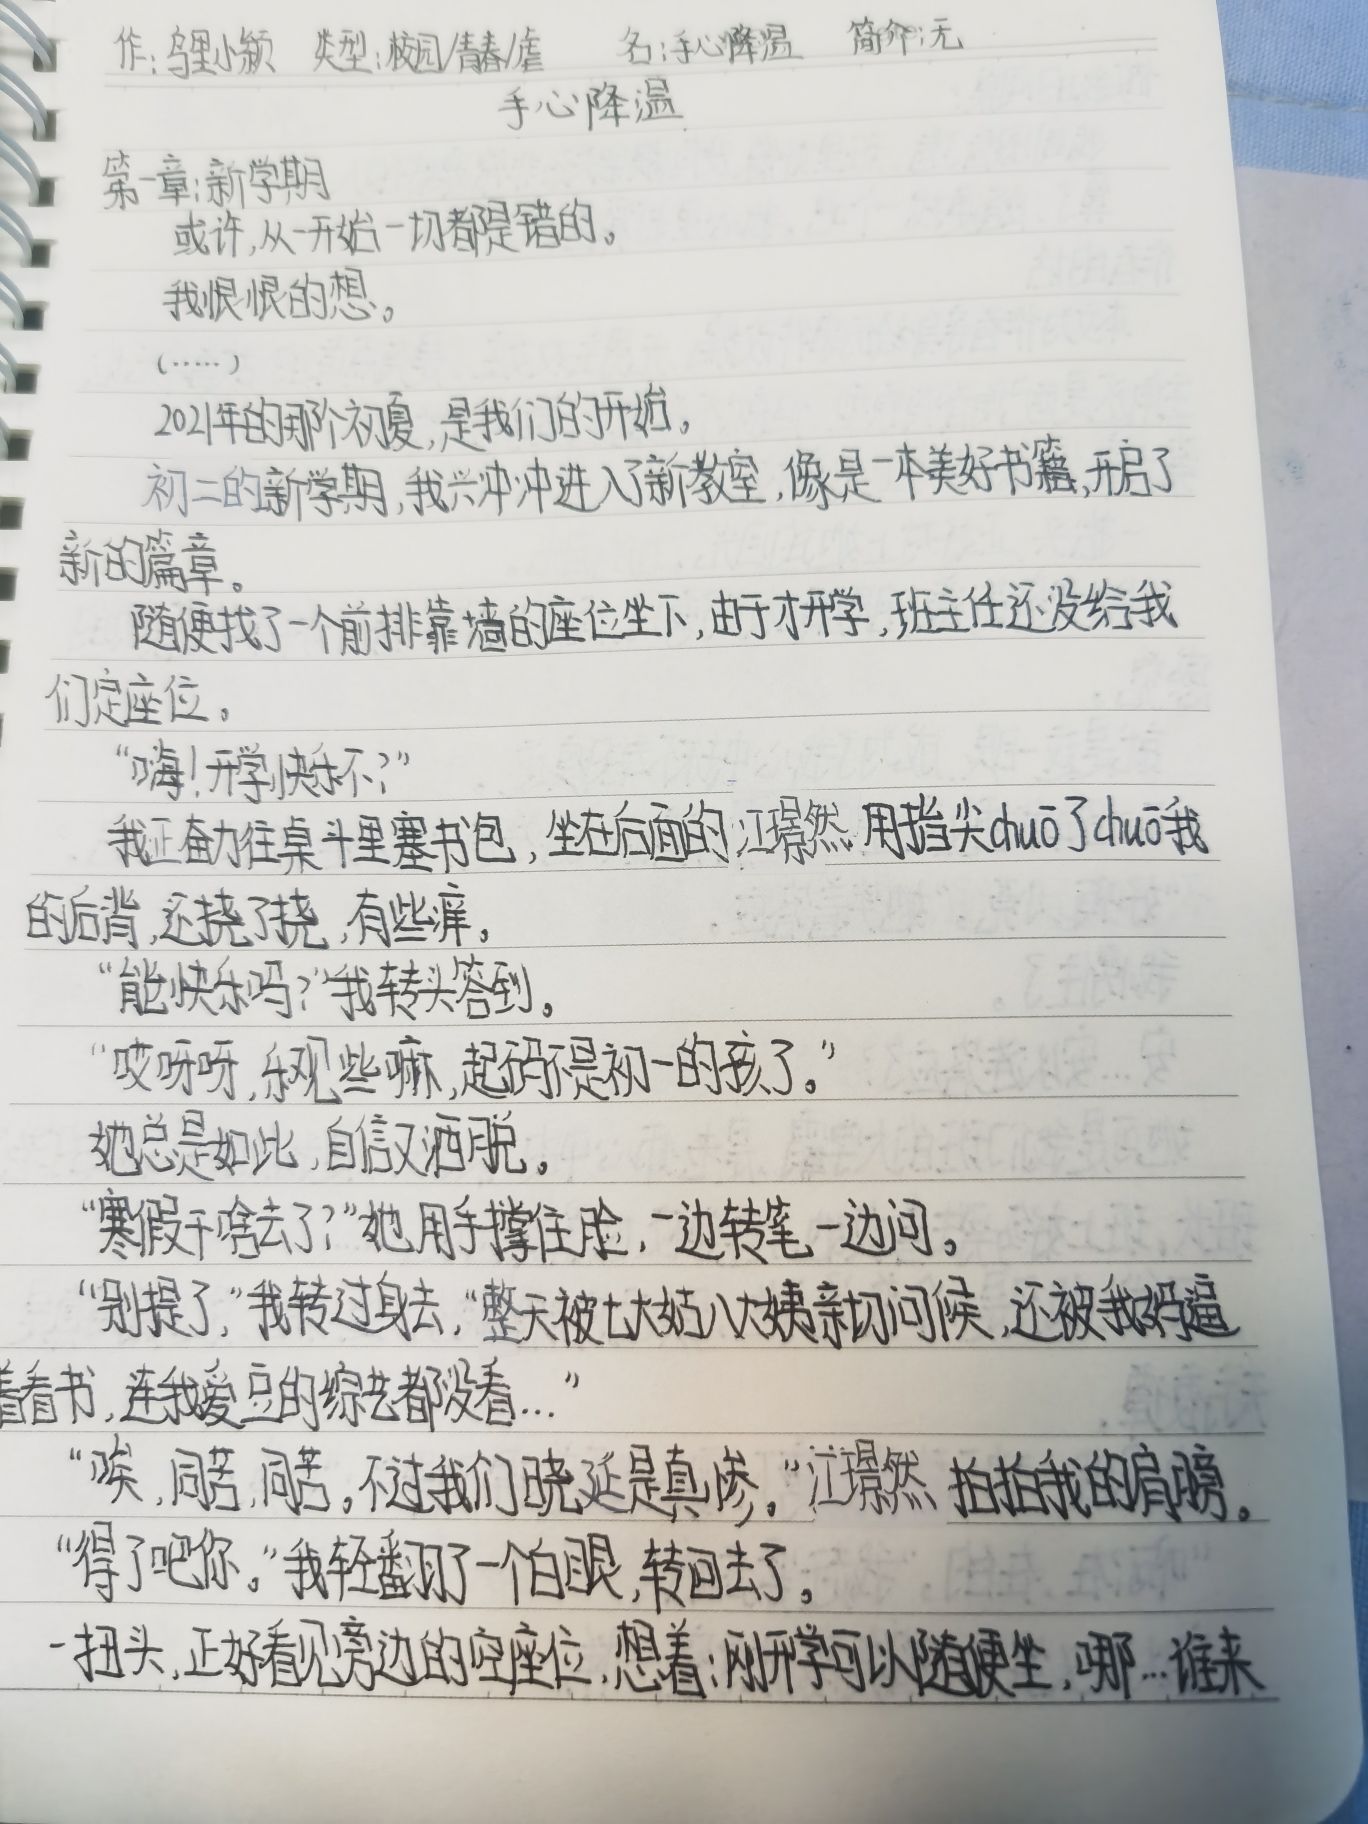 作:乌里小颍 类型:校园/青春/虐 名:手心降温 简介:无
手心降温
第一章:新学期
或许,从一开始一切都是错的。
我恨恨的想。
(……)
2021年的那个初夏,是我们的开始。
初二的新学期,我兴冲冲进入了新教室,像是一本美好书籍,开启了
新的篇章。
随便找了一个前排靠墙的座位坐下,由于才开学,班主任还没给我
们定座位。
“嗨!开学快乐不?”
我正奋力往桌斗里塞书包,坐在后面的江璟然用指尖chuō了chuō我
的后背,还挠了挠,有些痒。
“能快乐吗?”我转头答到。
“哎呀呀,乐观些嘛,起码不是初一的孩了。”
她总是如此,自信又洒脱。
“寒假干啥去了?”她用手撑住脸,一边转笔一边问。
“别提了,”我转过身去,“整天被七大姑八大姨亲切问候,还被我妈逼
着看书,连我爱豆的综艺都没看…”
“唉,同苦,同苦。不过我们晓延是真惨。”江璟然拍拍我的肩膀。
“得了吧你。”我轻翻了一个白眼,转回去了。
一扭头,正好看见旁边的空座位,想着:刚开学可以随便坐,哪…谁来